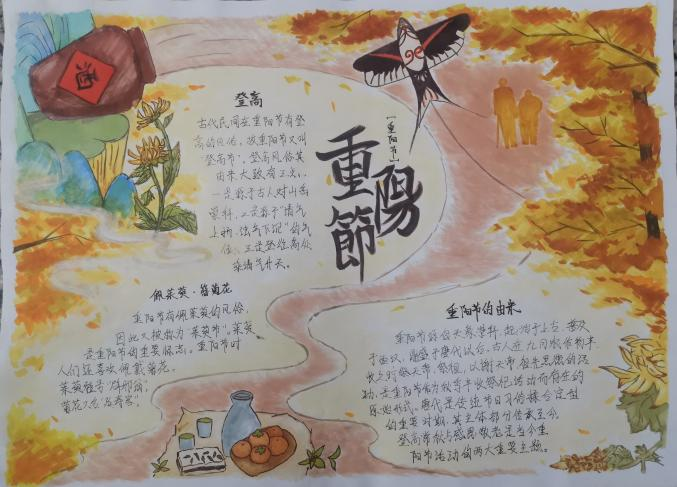 酒
登高
古代民间在重阳节有登
高的风俗，故重阳节又叫
“登高节”。登高风俗其
由来大致有三类：
一是源于古人对山岳
崇拜，二是源于“清气
上扬，浊气下沉”的气
候，三是登高
乘清气升天。
【重阳节】
重陽節
佩茱萸·簪菊花
重阳节有佩茱萸的风俗，
因此又被称为“茱萸节”。茱萸
是重阳节的重要标志。重阳节时
人们还喜欢佩戴菊花。
茱萸雅号“辟邪翁”，
菊花又名“延寿客”。
重阳节的由来
重阳节源自天象崇拜，起始于上古，普及
于西汉，鼎盛于唐代以后。古人在九月农作物丰
收之时祭天帝、祭祖，以谢天帝、祖先恩德的活
动，是重阳节作为秋季丰收祭祀活动而存在的
原始形式。唐代是传统节日习俗揉合定型
的重要时期，其主体部分传承至今。
登高赏秋与感恩敬老是当今重
阳节活动的两大重要主题。